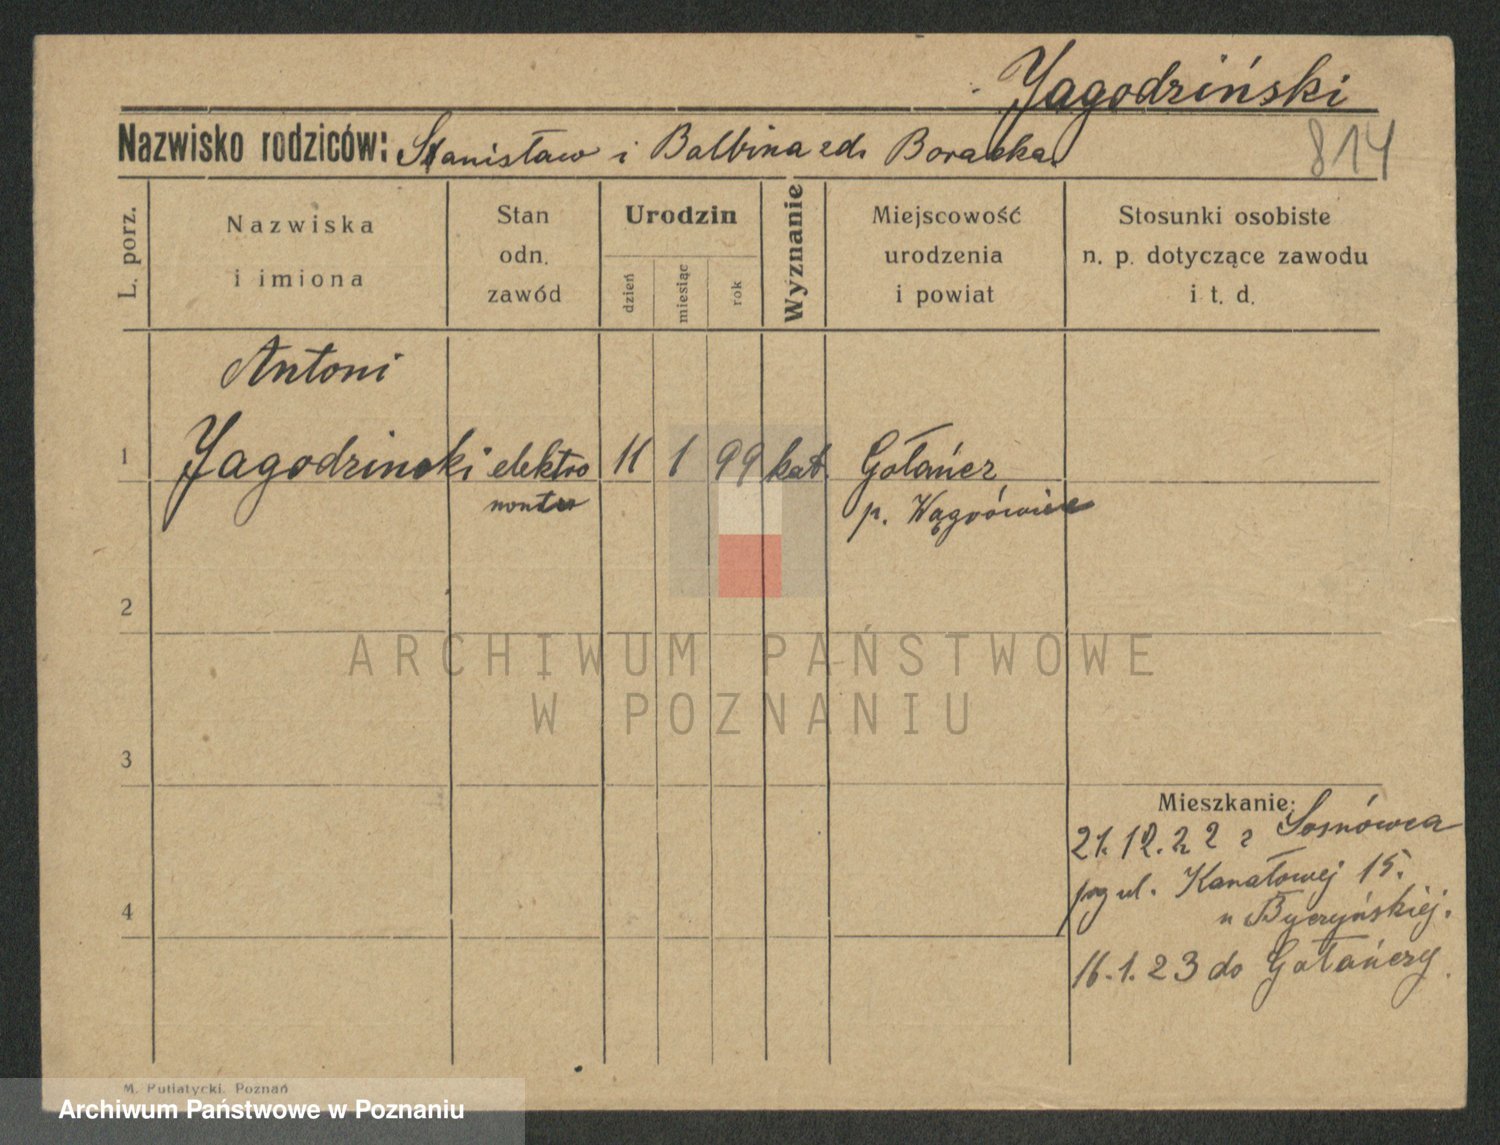 Jagodziński
Nazwisko rodziców: Stanisław i Balbina zd. Boracka.
814
L. porz.
Nazwiska
i imiona
Stan
odn.
zawód
Urodzin
dzień
miesiąc
rok
Wyznanie
Miejscowość
urodzenia
i powiat
Stosunki osobiste
n. p. dotyczące zawodu
i t. d.
Antoni
1 Jagodzinski elektro 11 1 99 kat. Gołańcz
monter p. Wągrówiec
2
3
4
Mieszkanie:
21.12.22 z Sosnówca
ul. Kanałowej 15.
u Byczyńskiej.
16.1.23 do Gołańczy
M. Putiatycki, Poznań
ARCHIWUM PAŃSTWOWE
W POZNANIU
Archiwum Państwowe w Poznaniu